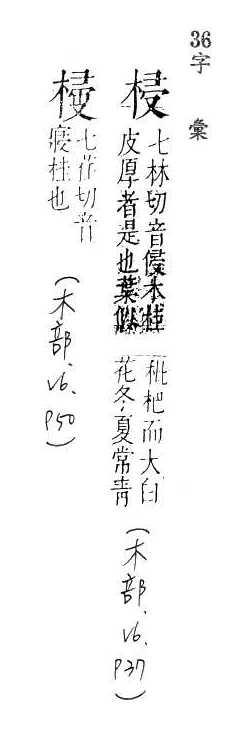 36
字 彙
梫
七林切音侵木桂
皮厚者是也葉似
枇杷而大白
花冬夏常靑
(木部.v6.p37)
七切音
桂也
(木部.v6.p50)